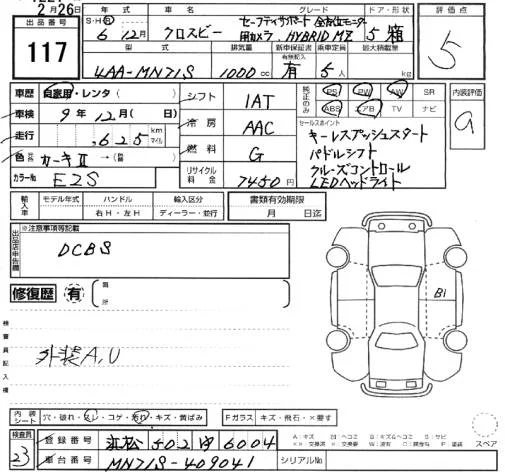 2月26日
出品番号
117
年式 車名 グレード ドア・形状 評価点
S・H・R
6 12月 クロスビー
セーフティサポート 全方位モニター
用カメラ HYBRID MZ
5 箱
5
型式 排気量 新車保証書 乗車定員 最大積載量
有無記入
4AA-MN71S 1000cc 有 5人 kg
車歴 自家用・レンタ( )
車検 9年12月( 日)
走行 ,625 km マイル
色
カラーNo. EZS
シフト IAT
冷房 AAC
燃料 G
リサイクル料金 7450円
純正のみ PS PW AW SR
ABS エアB TV ナビ
セールスポイント
キーレスプッシュスタート
パドルシフト
クルーズコントロール
LEDヘッドライト
内装評価
輸入車 モデル年式 ハンドル 輸入区分
右H・左H ディーラー・並行
書類有効期限
月 日迄
出品店申告欄
※注意事項等記載
DCBS
修復歴 有
箇所
検査員記入欄
外装A,U
B1
内装シート 穴・破れ・スレ・コゲ・汚れ・キズ・黄ばみ
Fガラス キズ・飛石・×要す
スペア
検査員
23
登録番号 浜松 502 6004
車台番号 MN71S-409041
シリアルNo.
A：キズ B：キズ&ヘコミ S：サビ